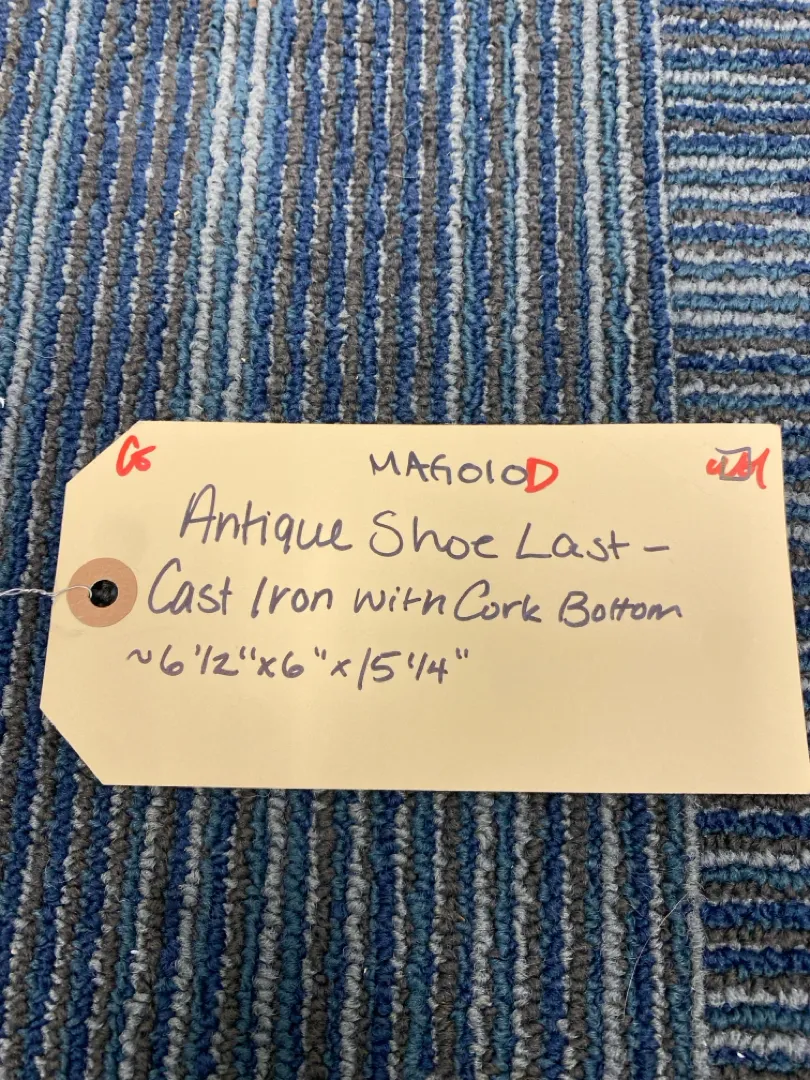 MAG010D
Antique Shoe Last -
Cast Iron with Cork Bottom
~6 1/2" x 6" x 15 1/4"